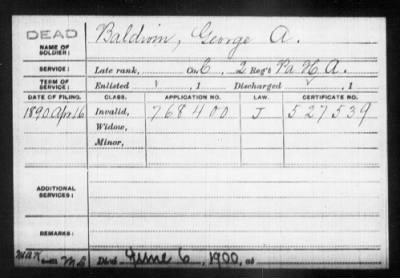 DEAD
NAME OF SOLDIER: Baldwin, George A.
SERVICE: Late rank, Co. C, 2 Reg't Pa H. A.
TERM OF SERVICE: Enlisted , 1 Discharged , 1
DATE OF FILING. CLASS. APPLICATION NO. LAW. CERTIFICATE NO.
1890. Apr. 16 Invalid, 768400 J 527539
Widow,
Minor,
ADDITIONAL SERVICES:
REMARKS:
Died June 6, 1900, at